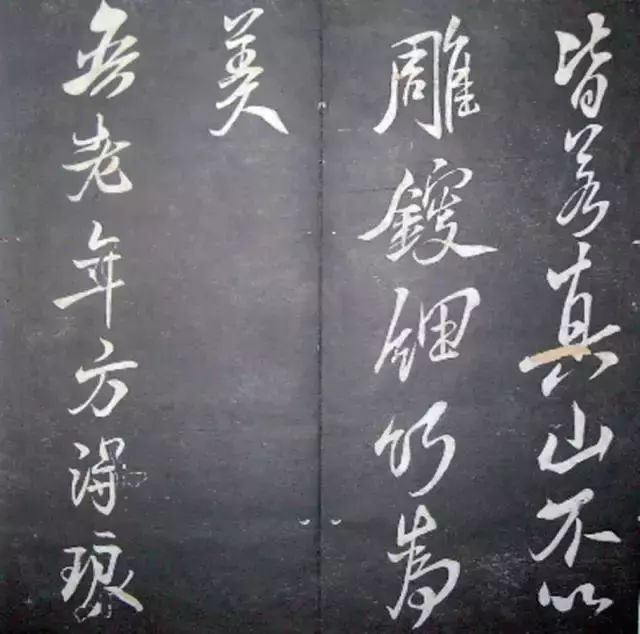 皆若真山不以
雕鎪細巧為
美
吾老年方得琅